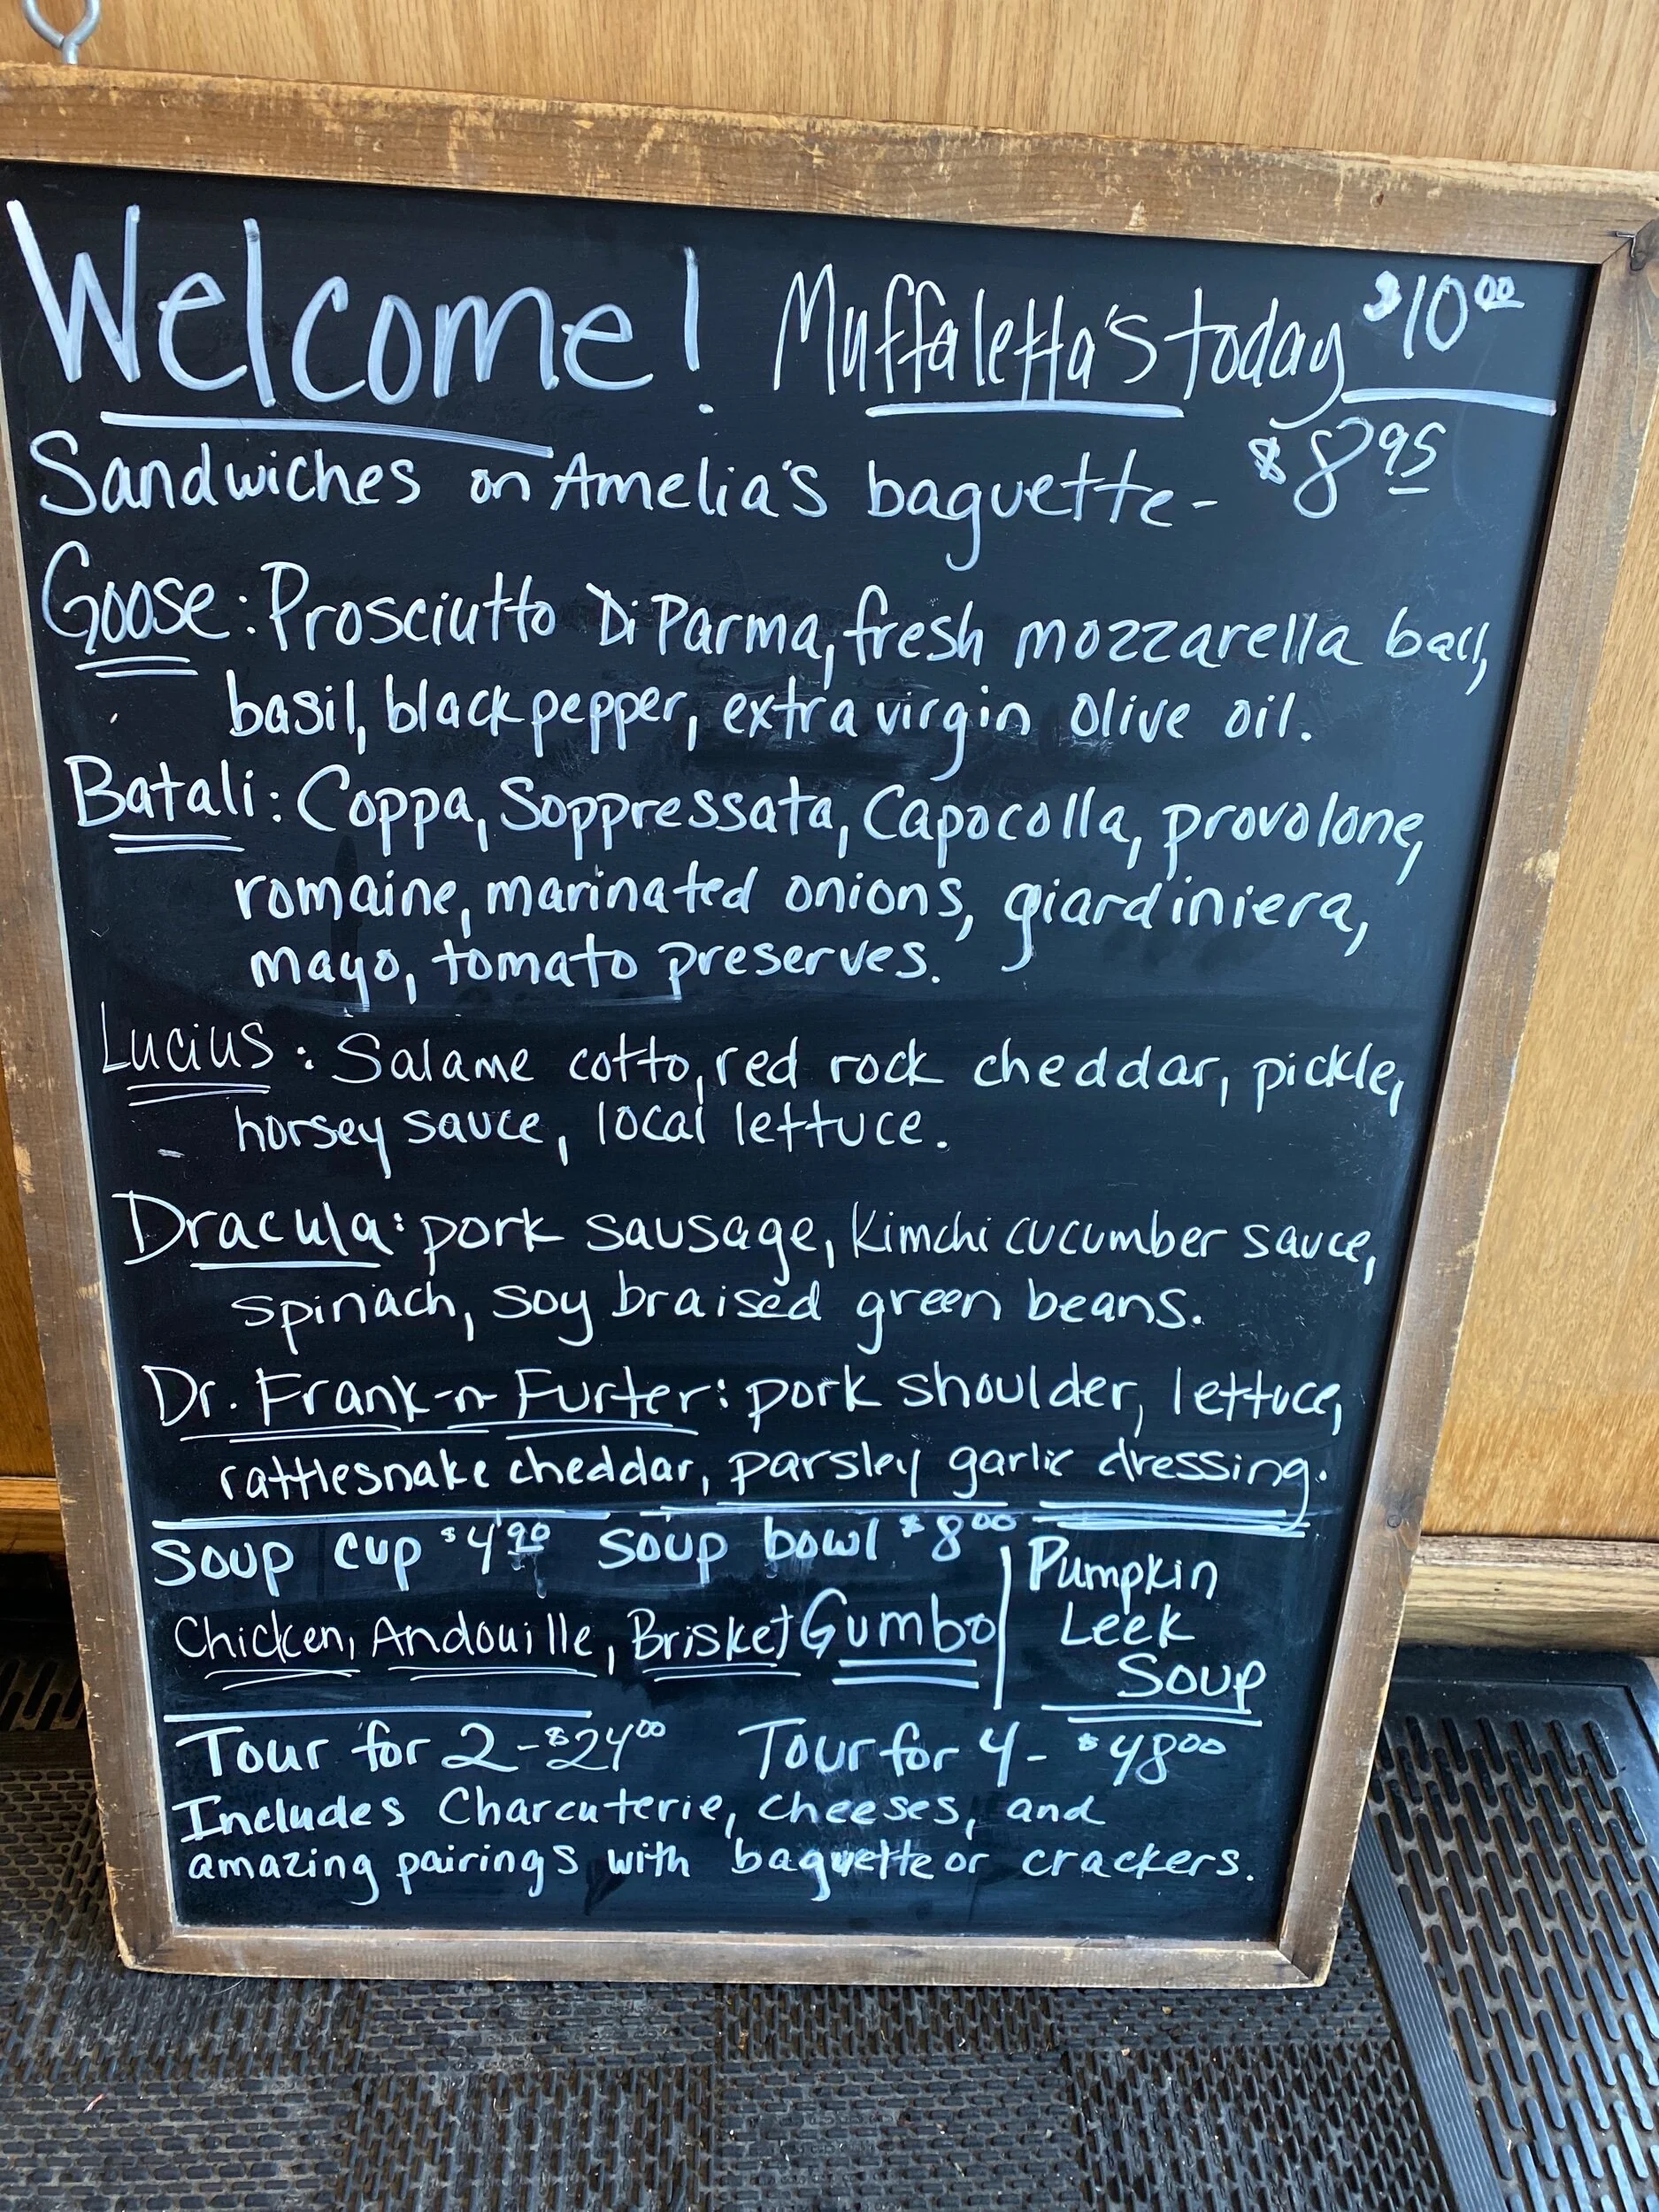 Welcome! Muffaletta's today $10.00
Sandwiches on Amelia's baguette - $8.95
Goose: Prosciutto Di Parma, fresh mozzarella ball,
basil, black pepper, extra virgin olive oil.
Batali: Coppa, Soppressata, Capocolla, provolone,
romaine, marinated onions, giardiniera,
mayo, tomato preserves.
Lucius: Salame cotto, red rock cheddar, pickle,
horsey sauce, local lettuce.
Dracula: pork sausage, Kimchi cucumber sauce,
spinach, soy braised green beans.
Dr. Frank-n-Furter: pork shoulder, lettuce,
rattlesnake cheddar, parsley garlic dressing.
Soup cup $4.90 Soup bowl $8.00
Chicken, Andouille, Brisket Gumbo
Pumpkin
Leek
Soup
Tour for 2 - $24.00 Tour for 4 - $48.00
Includes Charcuterie, cheeses, and
amazing pairings with baguette or crackers.